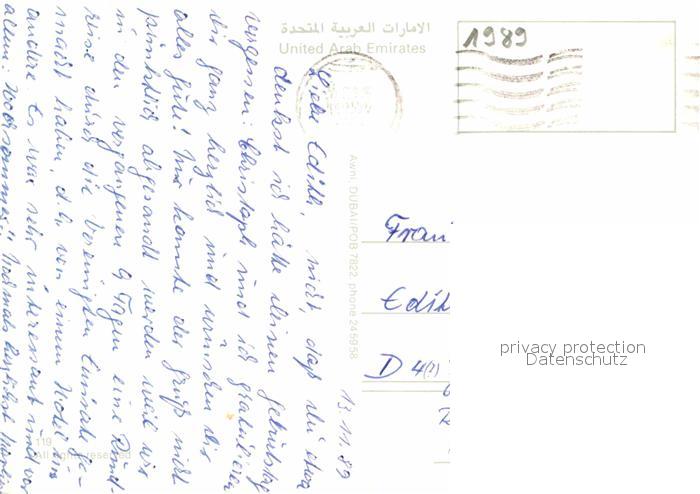 الامارات العربية المتحدة
United Arab Emirates
1989
Awni, DUBAI/POB 7822, phone 245958
119
All rights reserved
13.11.89
Liebe Edith, nicht, daß Du etwa
denkst ich hätte deinen Geburtstag
vergessen. Christoph und ich gratulieren
dir ganz herzlich und wünschen dir
alles Gute! Nur konnte der Gruß nicht
pünktlich abgesandt werden weil wir
in den vergangenen 4 Tagen eine Rund-
reise durch die Vereinigten Emirate ge-
macht haben, d.h. von einem Hotel ins
andere. Es war sehr interessant und vor
allem: Hochsommer! Nochmals herzlichst
Frau
Edith
D 4(?)
privacy protection
Datenschutz